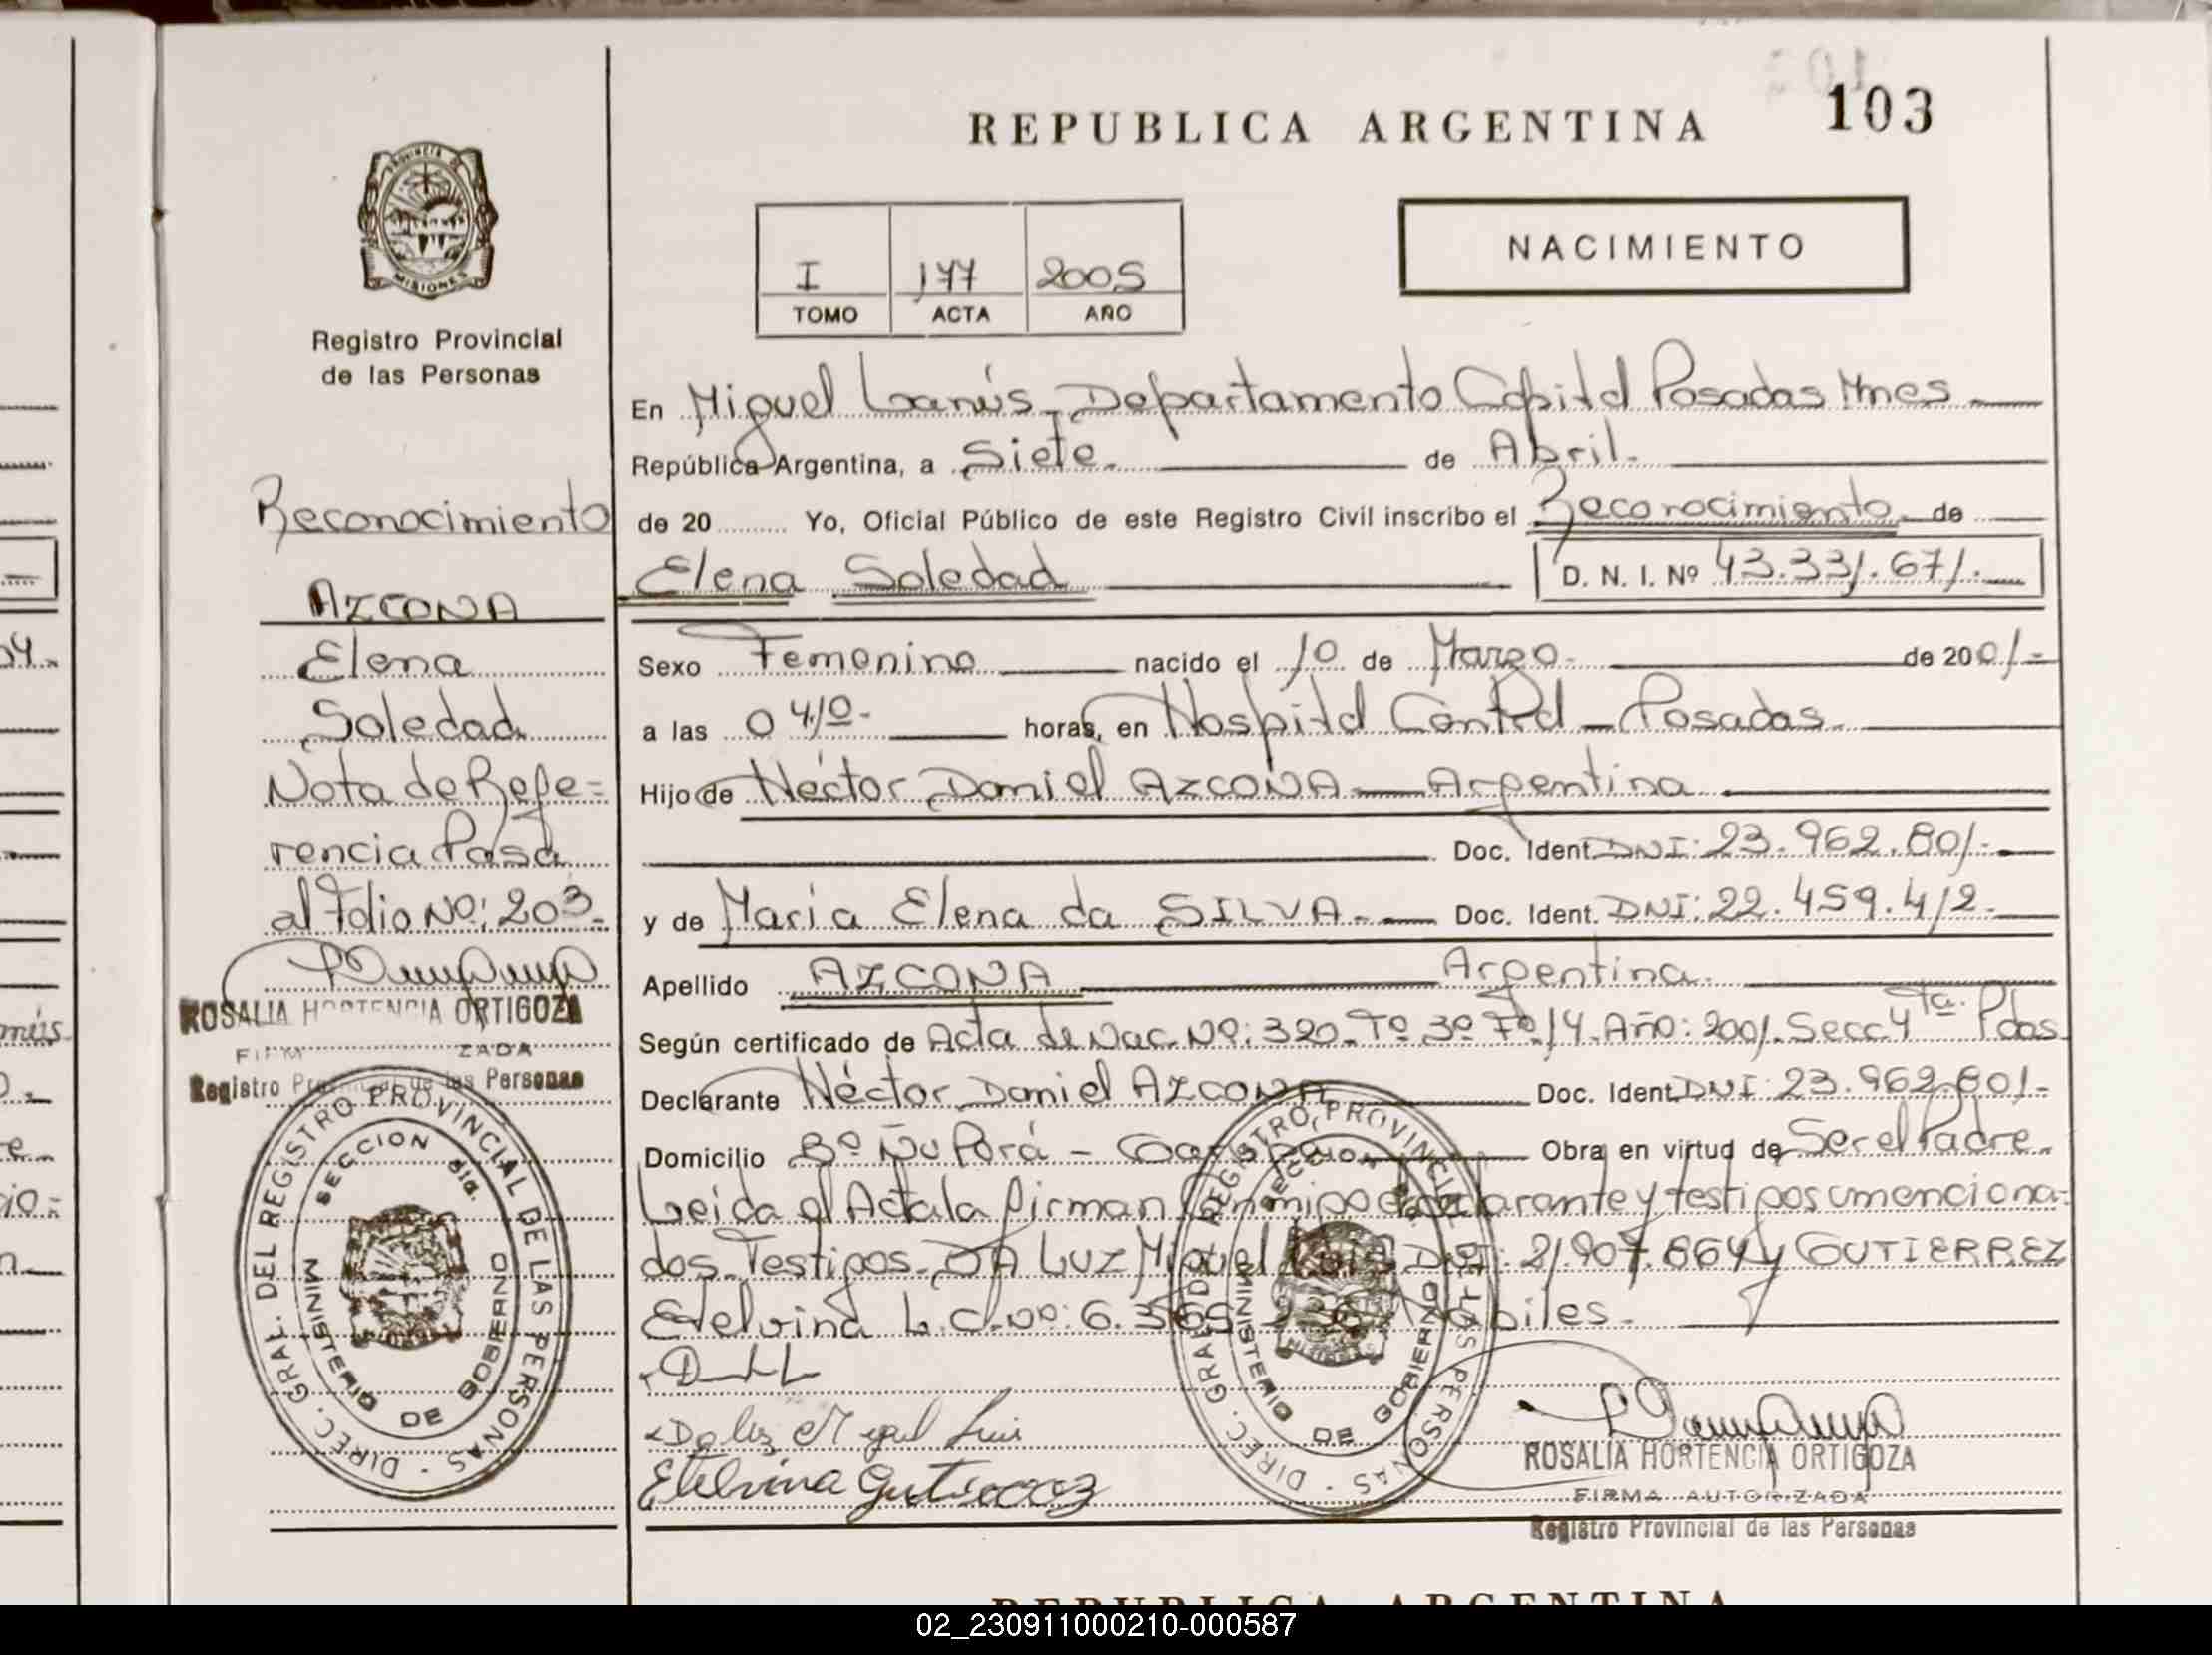 REPUBLICA ARGENTINA 103
PROVINCIA D
MISIONES
Registro Provincial
de las Personas
I 177 2005
TOMO ACTA AÑO
NACIMIENTO
En Miguel Lanús - Departamento Capital Posadas Mnes
República Argentina, a Siete. de Abril.
de 20 Yo, Oficial Público de este Registro Civil inscribo el Reconocimiento de
Elena Soledad D. N. I. Nº 43.331.671.
Sexo Femenino nacido el 10 de Marzo. de 2001-
a las 0410- horas, en Hospital Central - Posadas.
Hijo de Néctor Daniel AZCONA Argentina
Doc. Ident. DNI: 23.962.801-
y de Maria Elena da SILVA. Doc. Ident. DNI: 22.459.412.
Apellido AZCONA Argentina.
Según certificado de Acta de Nac. Nº: 320. Tº 3º Fº 14. Año: 2001. Secc 4ta. Pdas
Declarante Néctor Daniel AZCONA Doc. Ident. DNI: 23.962.801-
Domicilio Bº Ñu Porá - Garupá Obra en virtud de Ser el Padre.
Leída el Acta la firman Conmigo declarante y testigos menciona-
dos. Testigos - DA LUZ Miguel Luis DNI: 21.907.864 y GUTIERREZ
Etelvina L.C. Nº: 6.365. Hábiles.
Da luz Miguel Luis
Etelvina Gutierrez
ROSALIA HORTENCIA ORTIGOZA
FIRMA AUTORIZADA
Registro Provincial de las Personas
DIREC. GRAL. DEL REGISTRO PROVINCIAL DE LAS PERSONAS
SECCION
MINISTERIO DE GOBIERNO
Reconocimiento
AZCONA
Elena
Soledad
Nota de Refe=
rencia Pasa
al Folio Nº: 203.
ROSALIA HORTENCIA ORTIGOZA
FIRMA ZADA
Registro Provincial de las Personas
DIREC. GRAL. DEL REGISTRO PROVINCIAL DE LAS PERSONAS
SECCION
MINISTERIO DE GOBIERNO
REPUBLICA ARGENTINA
02_230911000210-000587